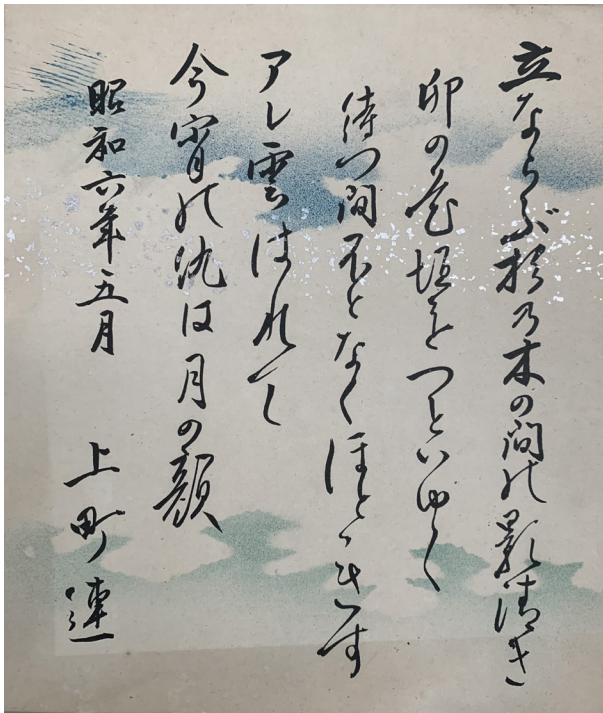 立ならぶ杉乃木の間の影清き
卯の花垣をつといゆく
待つ間ほとなくほとゝぎす
アレ雲はれて
今宵の仇は月の顔
昭和六年五月
上町連